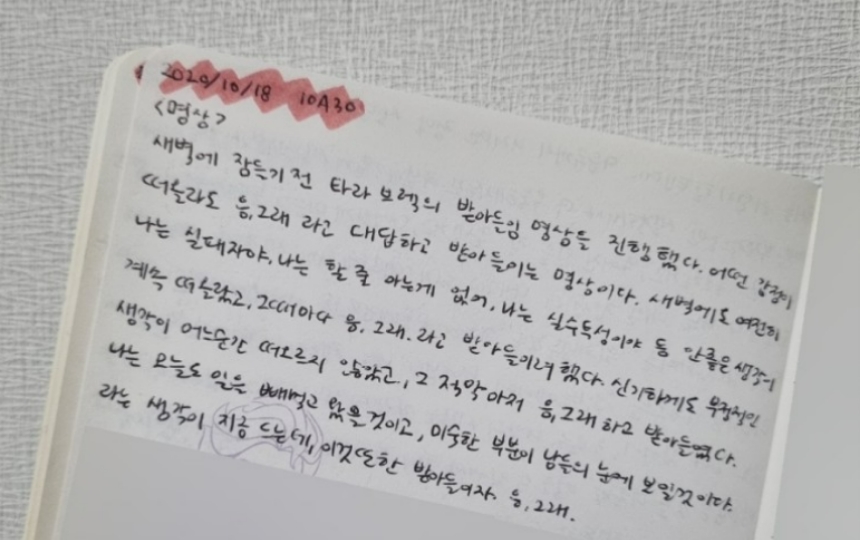 2020/10/18 10A30
<명상>
새벽에 잠들기 전 타라 브렉의 받아들임 명상을 진행했다. 어떤 감정이
떠올라도 응, 그래 라고 대답하고 받아들이는 명상이다. 새벽에도 여전히
나는 실패자야, 나는 할 줄 아는게 없어, 나는 실수투성이야 등 안좋은 생각이
계속 떠올랐고, 그때마다 응, 그래. 라고 받아들이려 했다. 신기하게도 부정적인
생각이 어느순간 떠오르지 않았고, 그 적막마저 응, 그래 하고 받아들였다.
나는 오늘도 일을 빼먹고 왔을것이고, 미숙한 부분이 남들의 눈에 보일것이다.
라는 생각이 지금 드는데, 이것또한 받아들이자. 응, 그래.